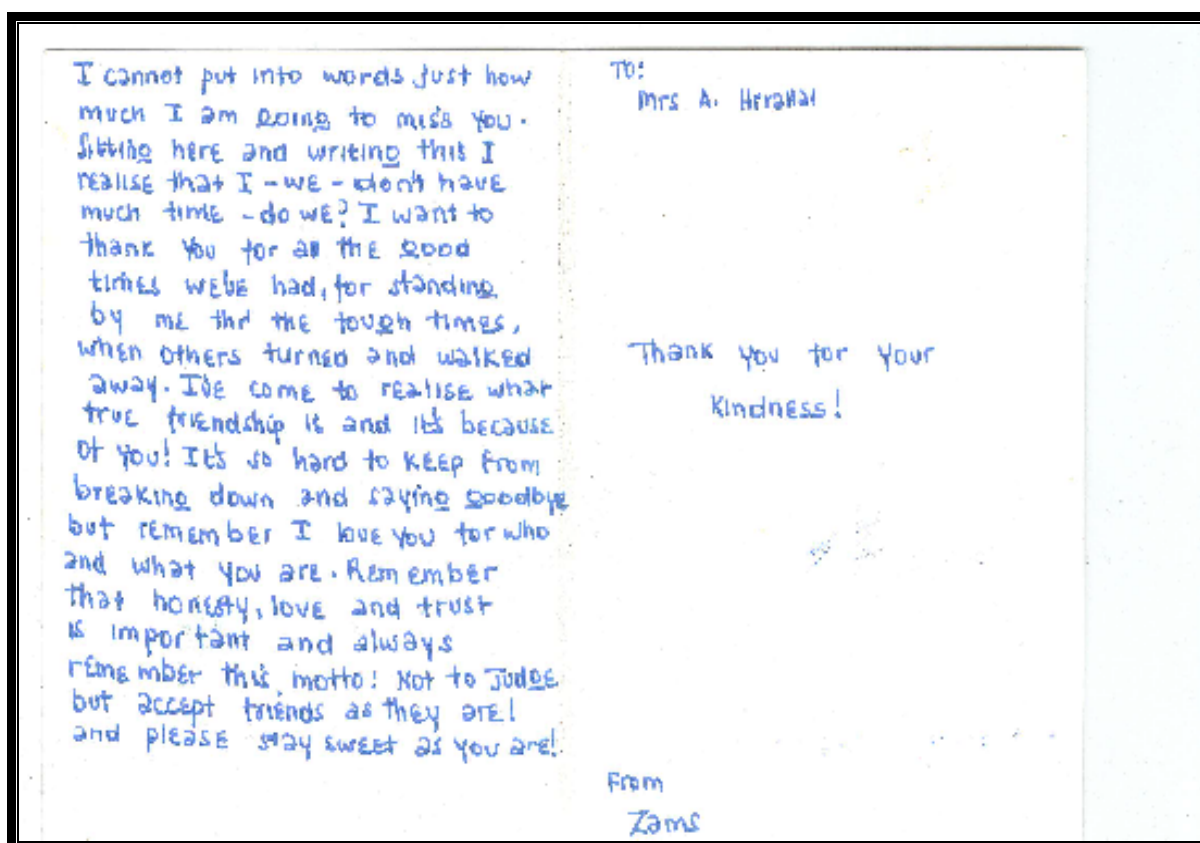 I cannot put into words just how
much I am going to miss you.
Sitting here and writing this I
realise that I - we - don't have
much time - do we? I want to
thank you for all the good
times we've had, for standing
by me thr the tough times,
when others turned and walked
away. I've come to realise what
true friendship is and it's because
of you! It's so hard to keep from
breaking down and saying goodbye
but remember I love you for who
and what you are. Remember
that honesty, love and trust
is important and always
remember this motto! Not to Judge
but accept friends as they are!
and please stay sweet as you are!
TO:
Mrs A.
Thank you for your
kindness!
From
Zams